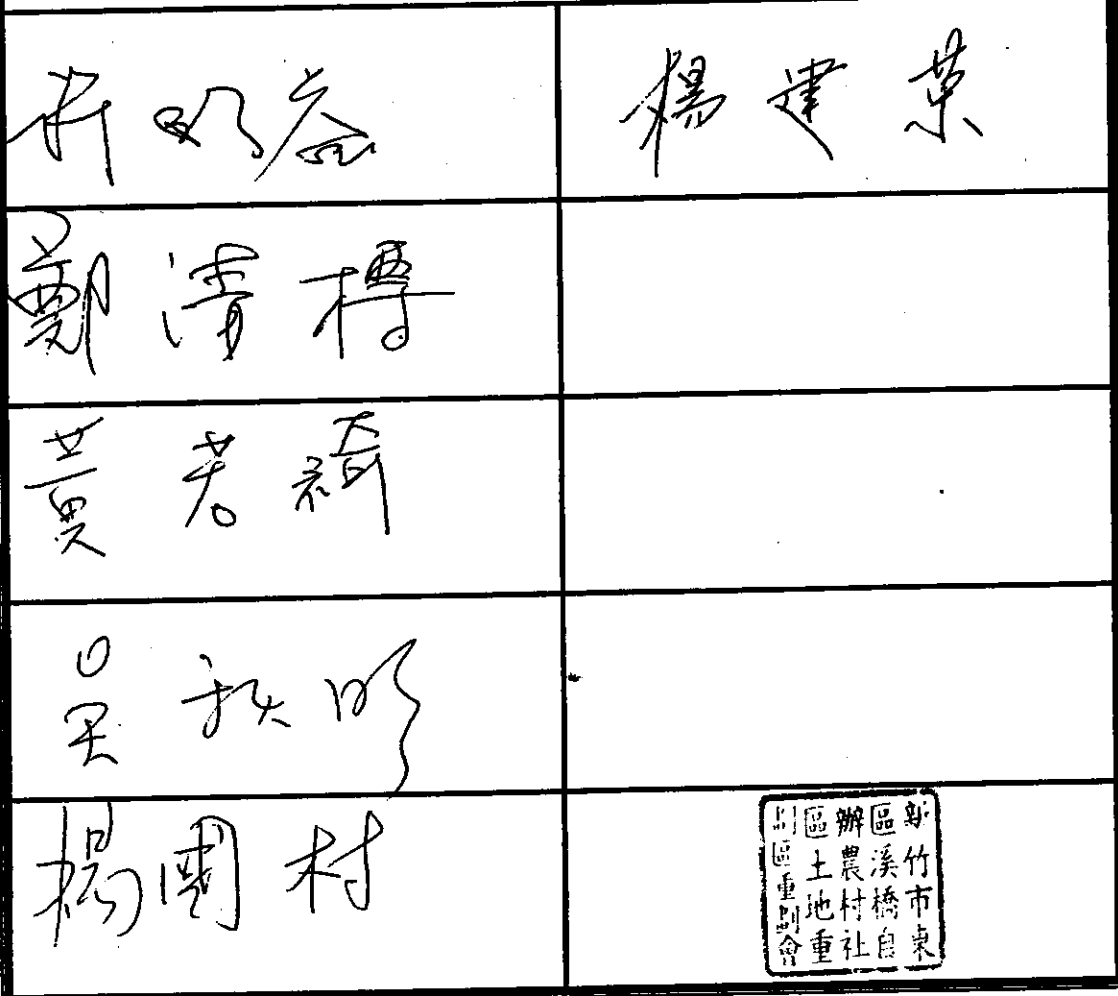 楊建業
鄭清樽
黃若綺
吳秋明
楊國村
新竹市東
區溪橋自
辦農村社
區土地重
劃區重劃會